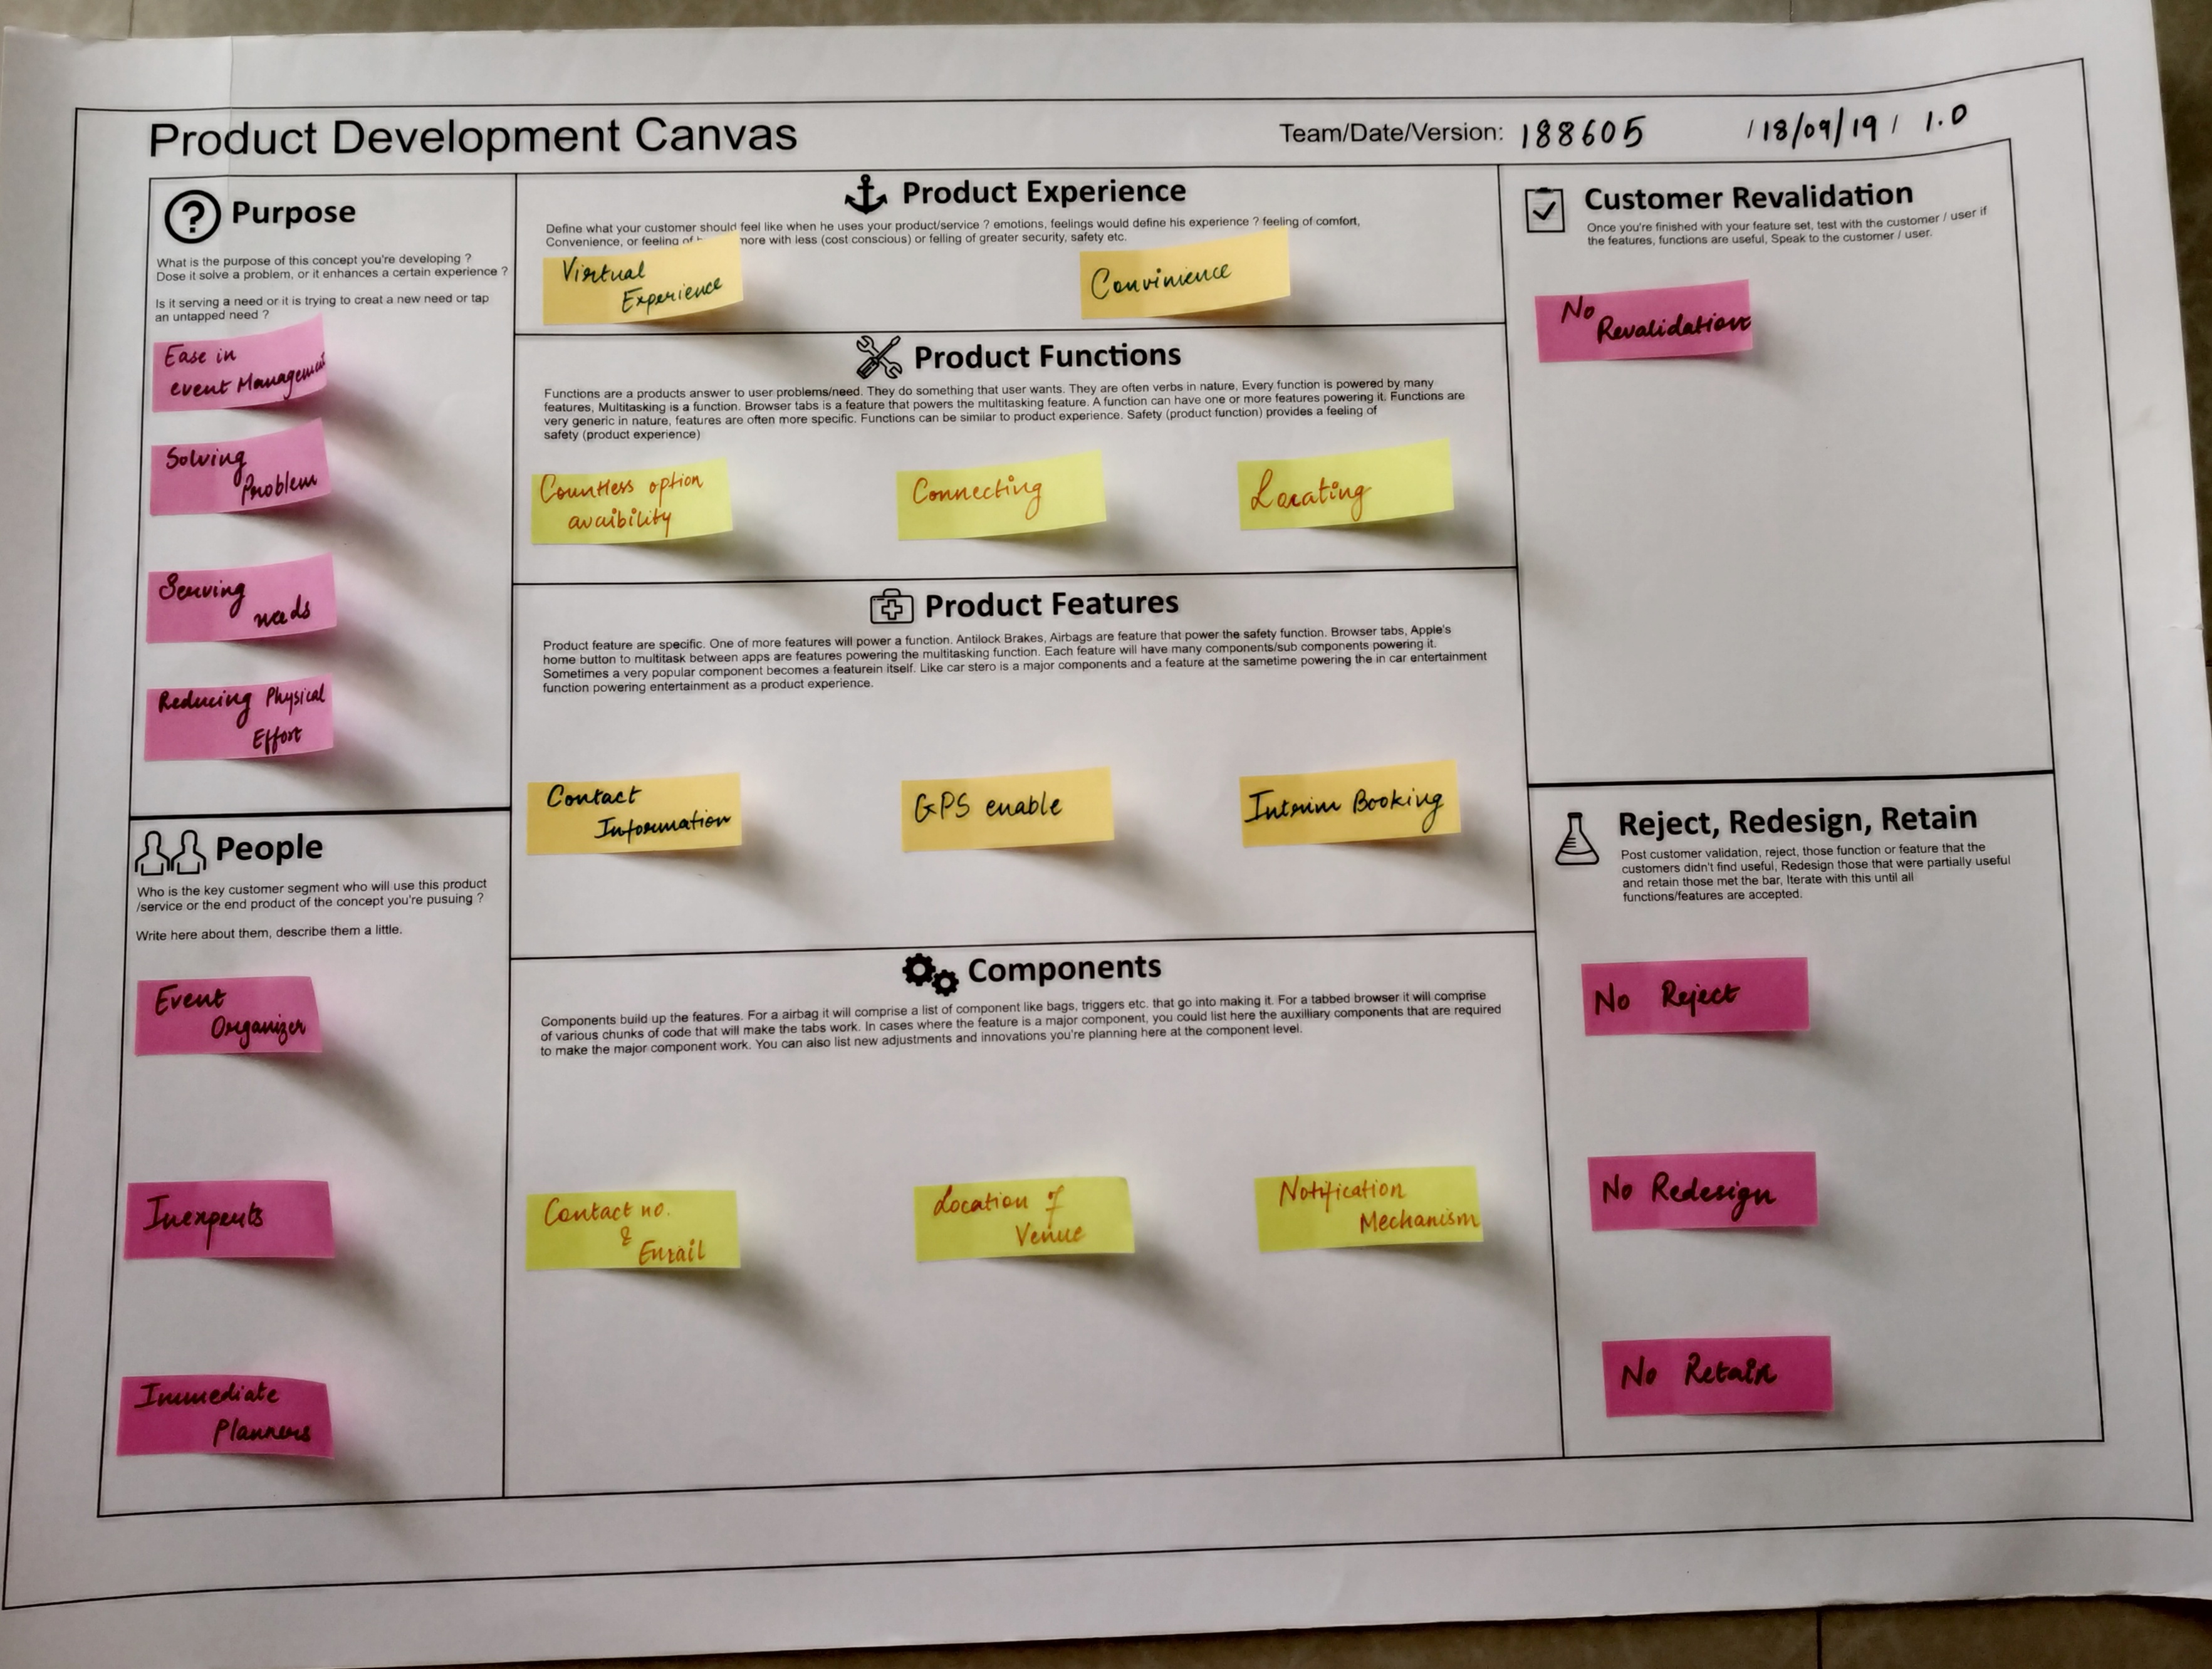 Product Development Canvas
Team/Date/Version: 188605 / 18/09/19 / 1.0
Purpose
What is the purpose of this concept you're developing ?
Dose it solve a problem, or it enhances a certain experience ?
Is it serving a need or it is trying to creat a new need or tap
an untapped need ?
Ease in
event Management
Solving
Problem
Serving
needs
Reducing Physical
Effort
People
Who is the key customer segment who will use this product
/service or the end product of the concept you're pusuing ?
Write here about them, describe them a little.
Event
Organizer
Inexperts
Immediate
Planners
Product Experience
Define what your customer should feel like when he uses your product/service ? emotions, feelings would define his experience ? feeling of comfort,
Convenience, or feeling of more with less (cost conscious) or felling of greater security, safety etc.
Virtual
Experience
Convinience
Product Functions
Functions are a products answer to user problems/need. They do something that user wants. They are often verbs in nature, Every function is powered by many
features, Multitasking is a function. Browser tabs is a feature that powers the multitasking feature. A function can have one or more features powering it. Functions are
very generic in nature, features are often more specific. Functions can be similar to product experience. Safety (product function) provides a feeling of
safety (product experience)
Countless option
avaibility
Connecting
Locating
Product Features
Product feature are specific. One of more features will power a function. Antilock Brakes, Airbags are feature that power the safety function. Browser tabs, Apple's
home button to multitask between apps are features powering the multitasking function. Each feature will have many components/sub components powering it.
Sometimes a very popular component becomes a featurein itself. Like car stero is a major components and a feature at the sametime powering the in car entertainment
function powering entertainment as a product experience.
Contact
Information
GPS enable
Interim Booking
Components
Components build up the features. For a airbag it will comprise a list of component like bags, triggers etc. that go into making it. For a tabbed browser it will comprise
of various chunks of code that will make the tabs work. In cases where the feature is a major component, you could list here the auxilliary components that are required
to make the major component work. You can also list new adjustments and innovations you're planning here at the component level.
Contact no.
&
Email
Location of
Venue
Notification
Mechanism
Customer Revalidation
Once you're finished with your feature set, test with the customer / user if
the features, functions are useful, Speak to the customer / user.
No
Revalidation
Reject, Redesign, Retain
Post customer validation, reject, those function or feature that the
customers didn't find useful, Redesign those that were partially useful
and retain those met the bar, Iterate with this until all
functions/features are accepted.
No Reject
No Redesign
No Retain